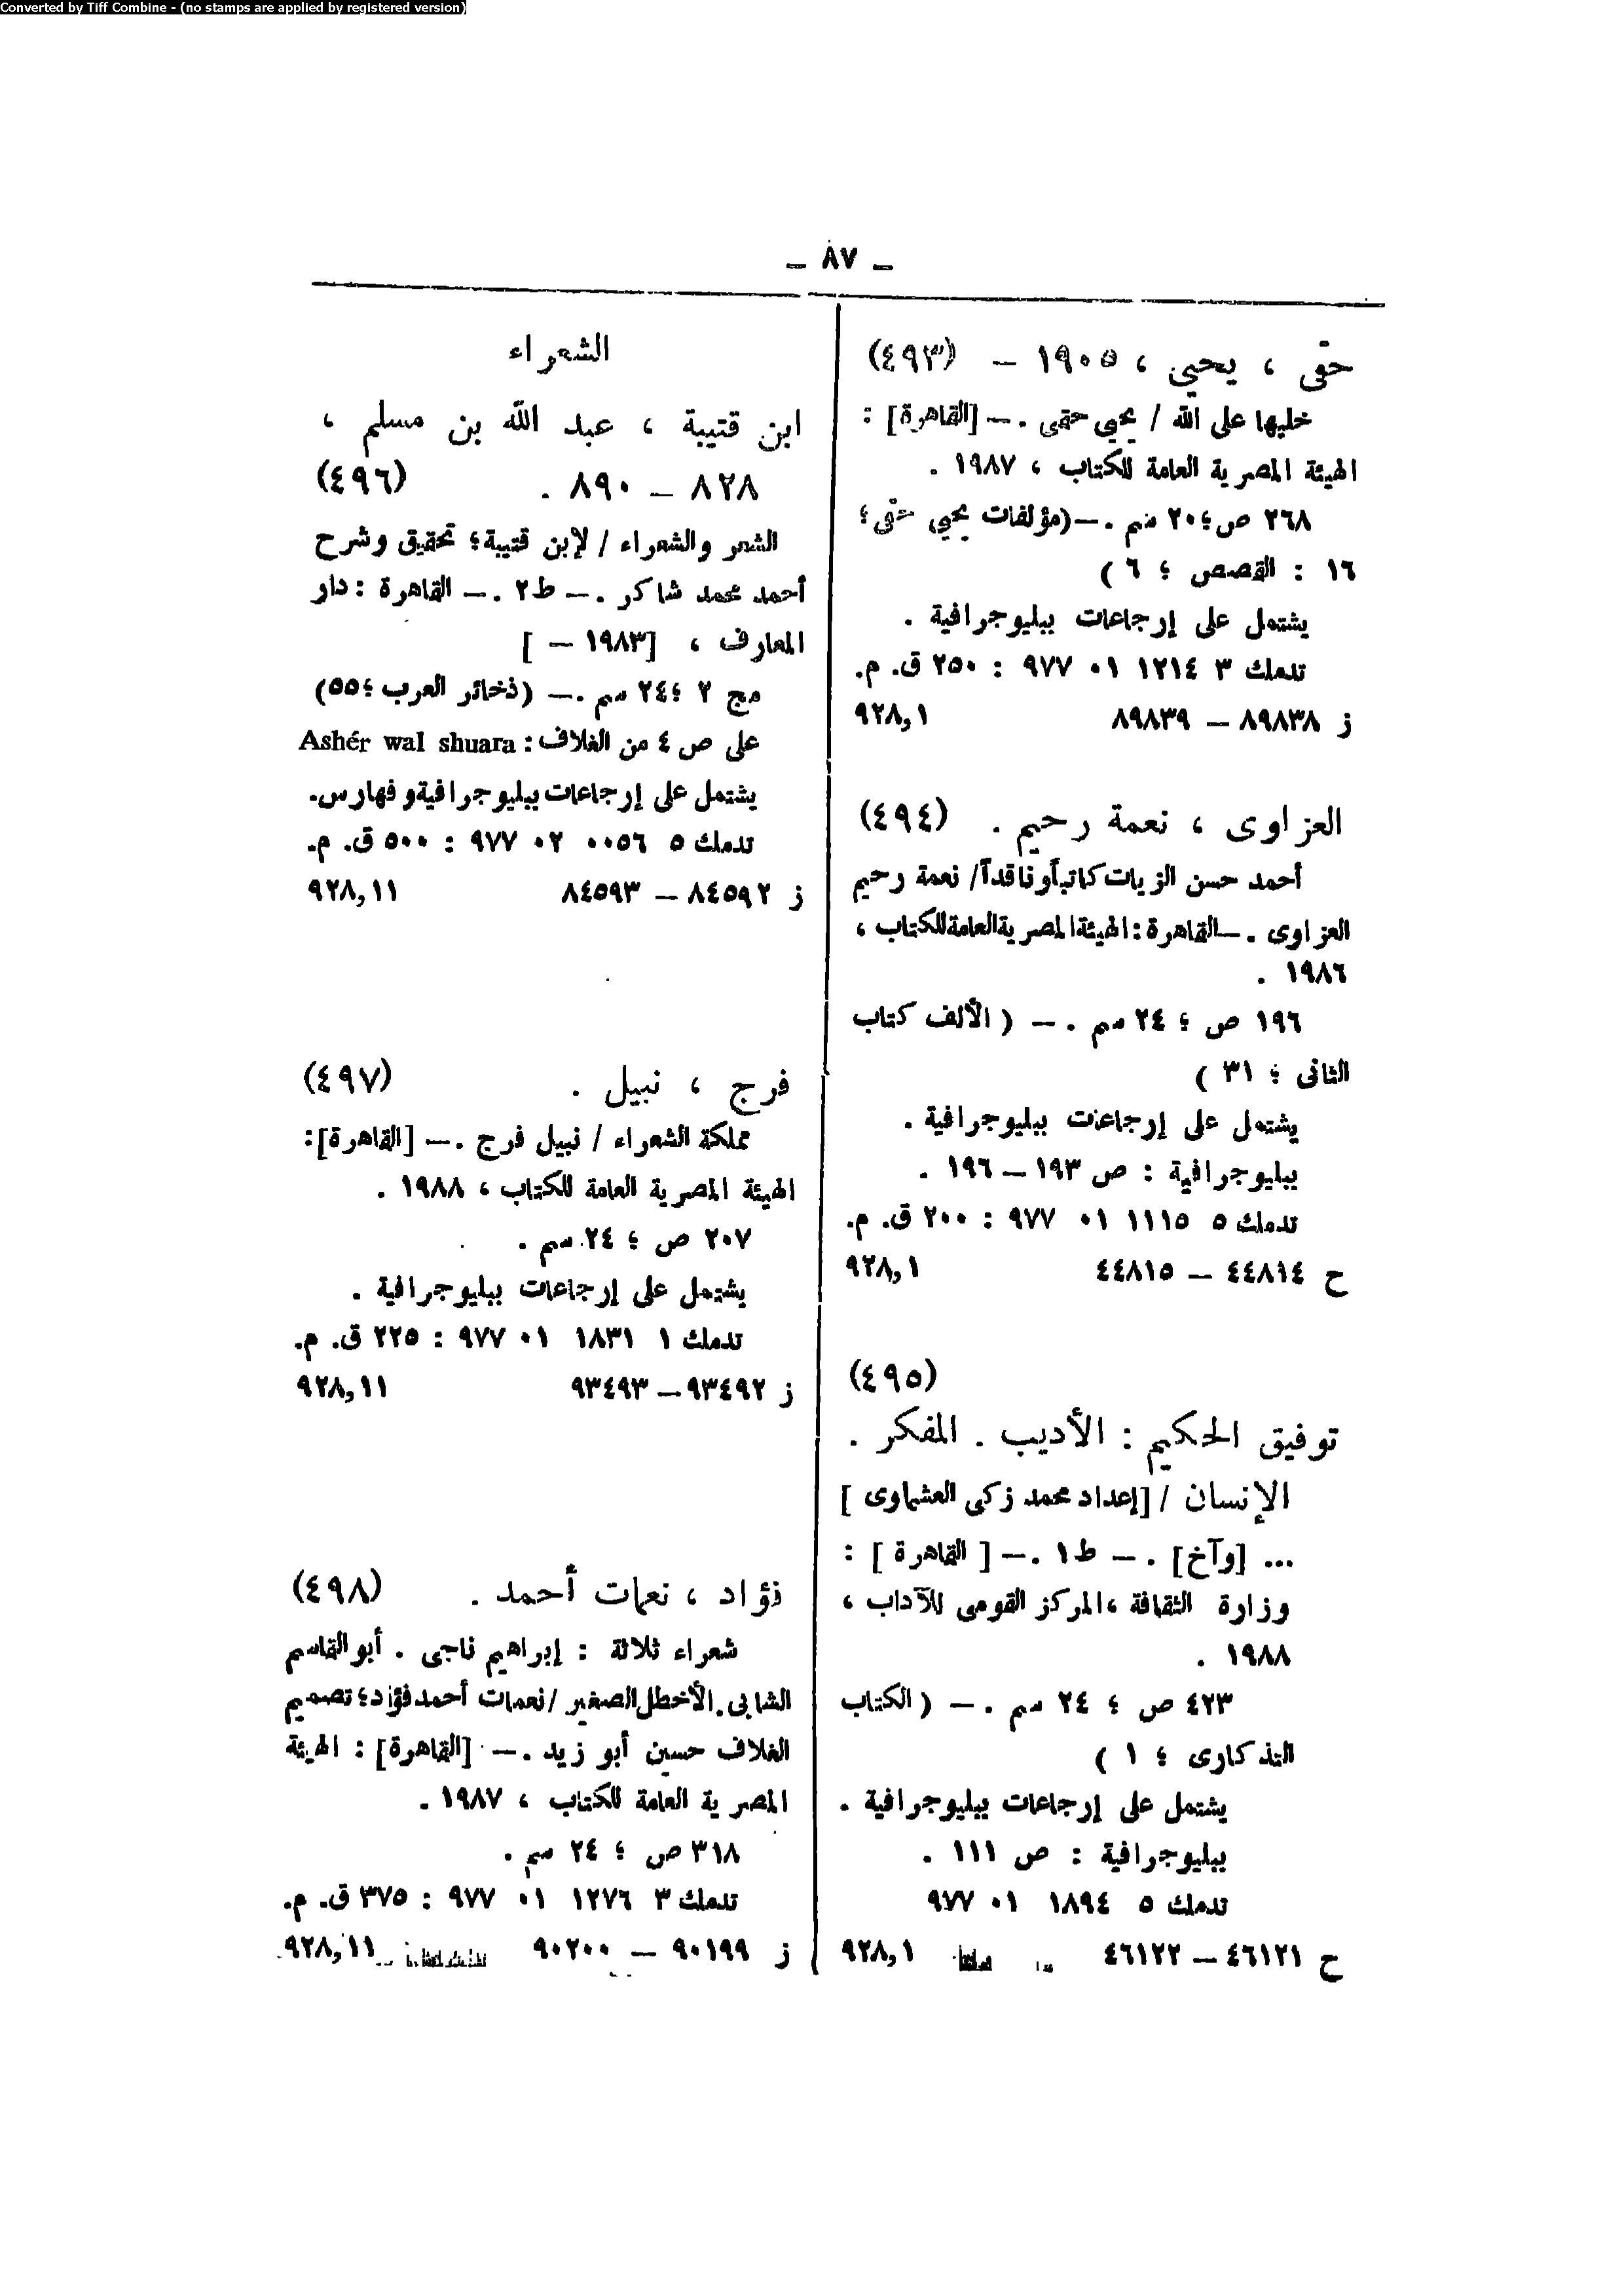 Converted by Tiff Combine - (no stamps are applied by registered version)
– ٨٧ –
حقّى ، يحيي ، ١٩٠٥ – (٤٩٣)
خليها على الله / يحيى حقى .– [القاهرة] :
الهيئة المصرية العامة للكتاب ، ١٩٨٧ .
٢٦٨ ص ؛ ٢٠ سم .– (مؤلفات يحيي حقّى ؛
١٦ : القصص ؛ ٦ )
يشتمل على إرجاعات ببليوجرافية .
تدمك ٣ ١٢١٤ ٠١ ٩٧٧ : ٢٥٠ ق. م.
ز ٨٩٨٣٨ – ٨٩٨٣٩ ٩٢٨,١
العزاوى ، نعمة رحيم . (٤٩٤)
أحمد حسن الزيات كاتباً وناقداً / نعمة رحيم
العزاوى .– القاهرة : الهيئة المصرية العامة للكتاب ،
١٩٨٦ .
١٩٦ ص ؛ ٢٤ سم .– ( الألف كتاب
الثانى ؛ ٣١ )
يشتمل على إرجاعات ببليوجرافية .
ببليوجرافية : ص ١٩٣ – ١٩٦ .
تدمك ٥ ١١١٥ ٠١ ٩٧٧ : ٢٠٠ ق. م.
ح ٤٤٨١٤ – ٤٤٨١٥ ٩٢٨,١
(٤٩٥)
توفيق الحكيم : الأديب . المفكر .
الإنسان / [إعداد محمد زكى العشماوى ]
... [وآخ] .– ط١ .– [ القاهرة ] :
وزارة الثقافة ، المركز القومى للآداب ،
١٩٨٨ .
٤٢٣ ص ؛ ٢٤ سم .– ( الكتاب
التذكارى ؛ ١ )
يشتمل على إرجاعات ببليوجرافية .
ببليوجرافية : ص ١١١ .
تدمك ٥ ١٨٩٤ ٠١ ٩٧٧
ح ٤٦١٢١ – ٤٦١٢٢ ٩٢٨,١
الشعراء
ابن قتيبة ، عبد الله بن مسلم ،
٨٢٨ – ٨٩٠ . (٤٩٦)
الشعر والشعراء / لإبن قتيبة ؛ تحقيق وشرح
أحمد محمد شاكر .– ط٢ .– القاهرة : دار
المعارف ، [١٩٨٣ – ]
مج ٢ ؛ ٢٤ سم .– (ذخائر العرب ؛ ٥٥)
على ص ٤ من الغلاف : Ashér wal shuara
يشتمل على إرجاعات ببليوجرافية وفهارس.
تدمك ٥ ٠٠٥٦ ٠٢ ٩٧٧ : ٥٠٠ ق. م.
ز ٨٤٥٩٢ – ٨٤٥٩٣ ٩٢٨,١١
فرج ، نبيل . (٤٩٧)
مملكة الشعراء / نبيل فرج .– [القاهرة] :
الهيئة المصرية العامة للكتاب ، ١٩٨٨ .
٢٠٧ ص ؛ ٢٤ سم .
يشتمل على إرجاعات ببليوجرافية .
تدمك ١ ١٨٣١ ٠١ ٩٧٧ : ٢٢٥ ق. م.
ز ٩٣٤٩٢ – ٩٣٤٩٣ ٩٢٨,١١
فؤاد ، نعمات أحمد . (٤٩٨)
شعراء ثلاثة : إبراهيم ناجى . أبو القاسم
الشابى . الأخطل الصغير / نعمات أحمد فؤاد ؛ تصميم
الغلاف حسين أبو زيد .– [القاهرة] : الهيئة
المصرية العامة للكتاب ، ١٩٨٧ .
٣١٨ ص ؛ ٢٤ سم .
تدمك ٣ ١٢٧٦ ٠١ ٩٧٧ : ٣٧٥ ق. م.
ز ٩٠١٩٩ – ٩٠٢٠٠ ٩٢٨,١١